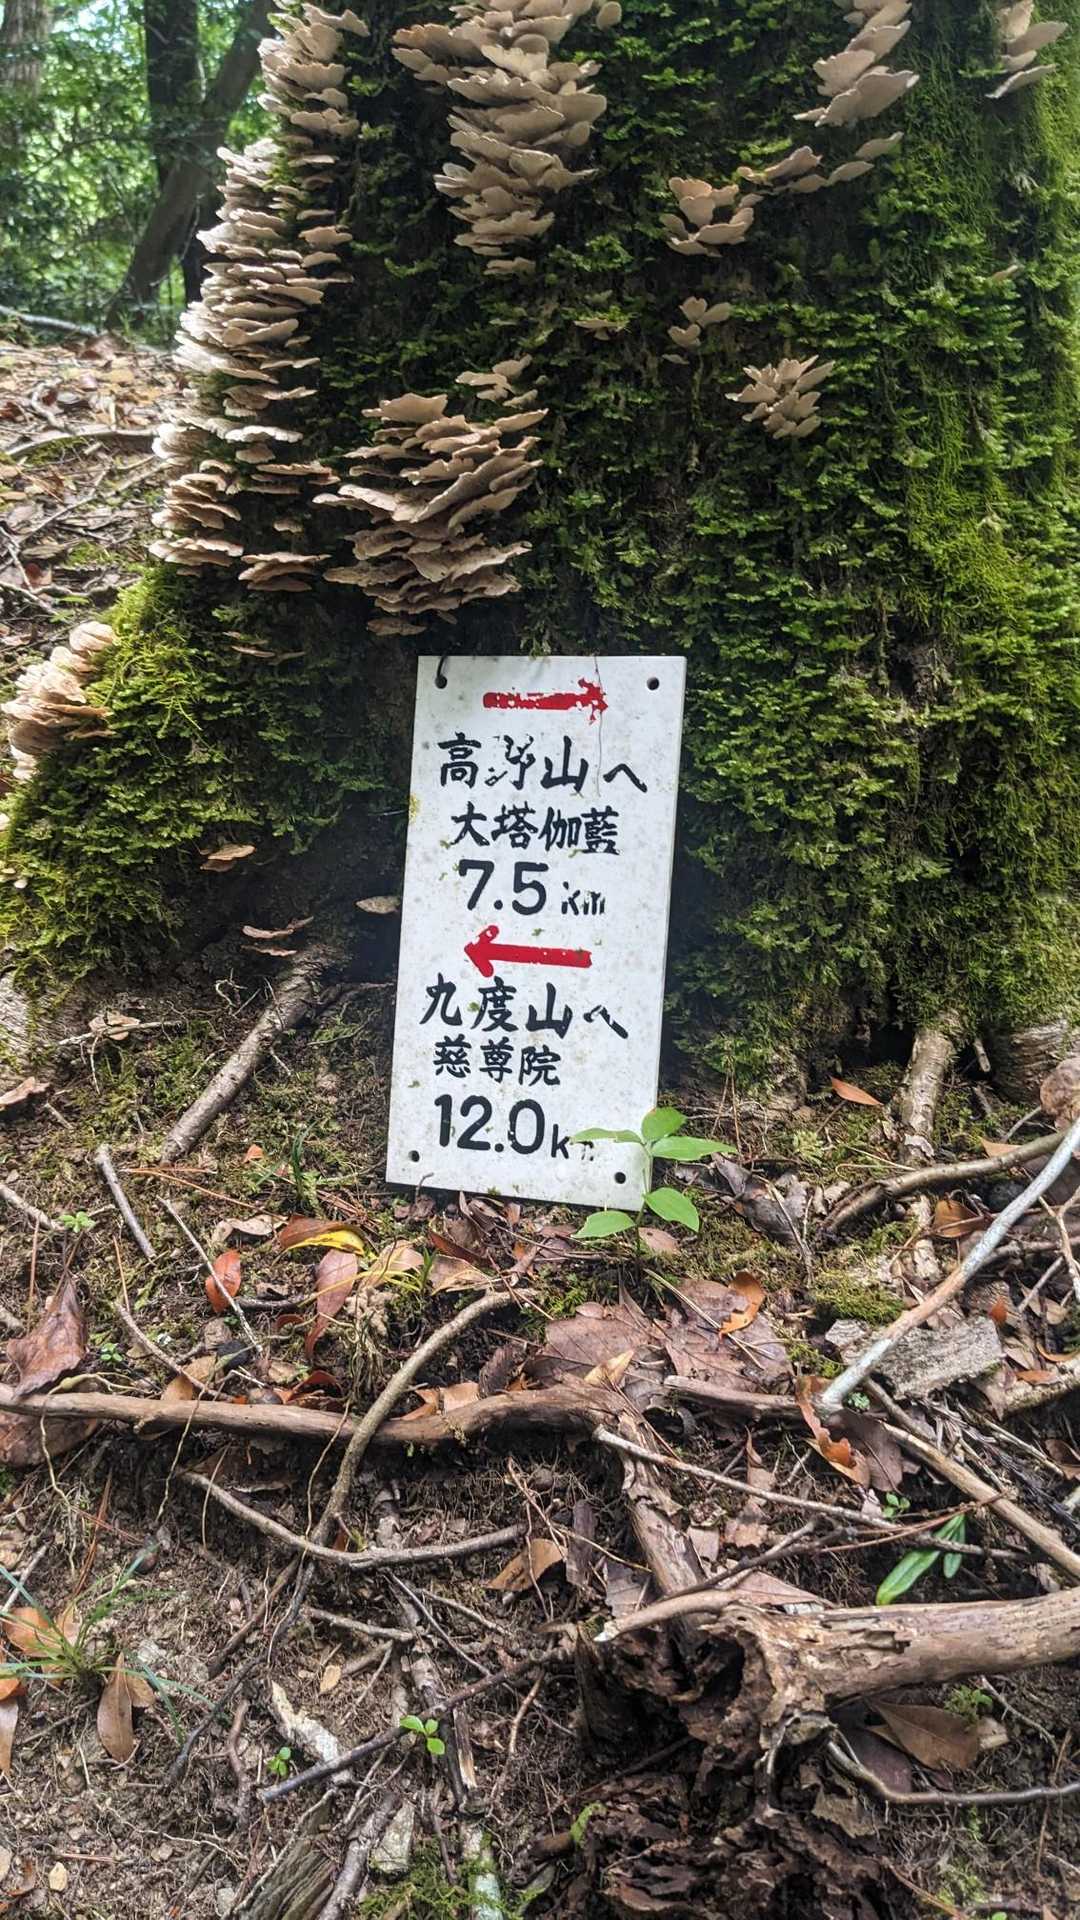 高野山へ
大塔伽藍
7.5km
九度山へ
慈尊院
12.0km